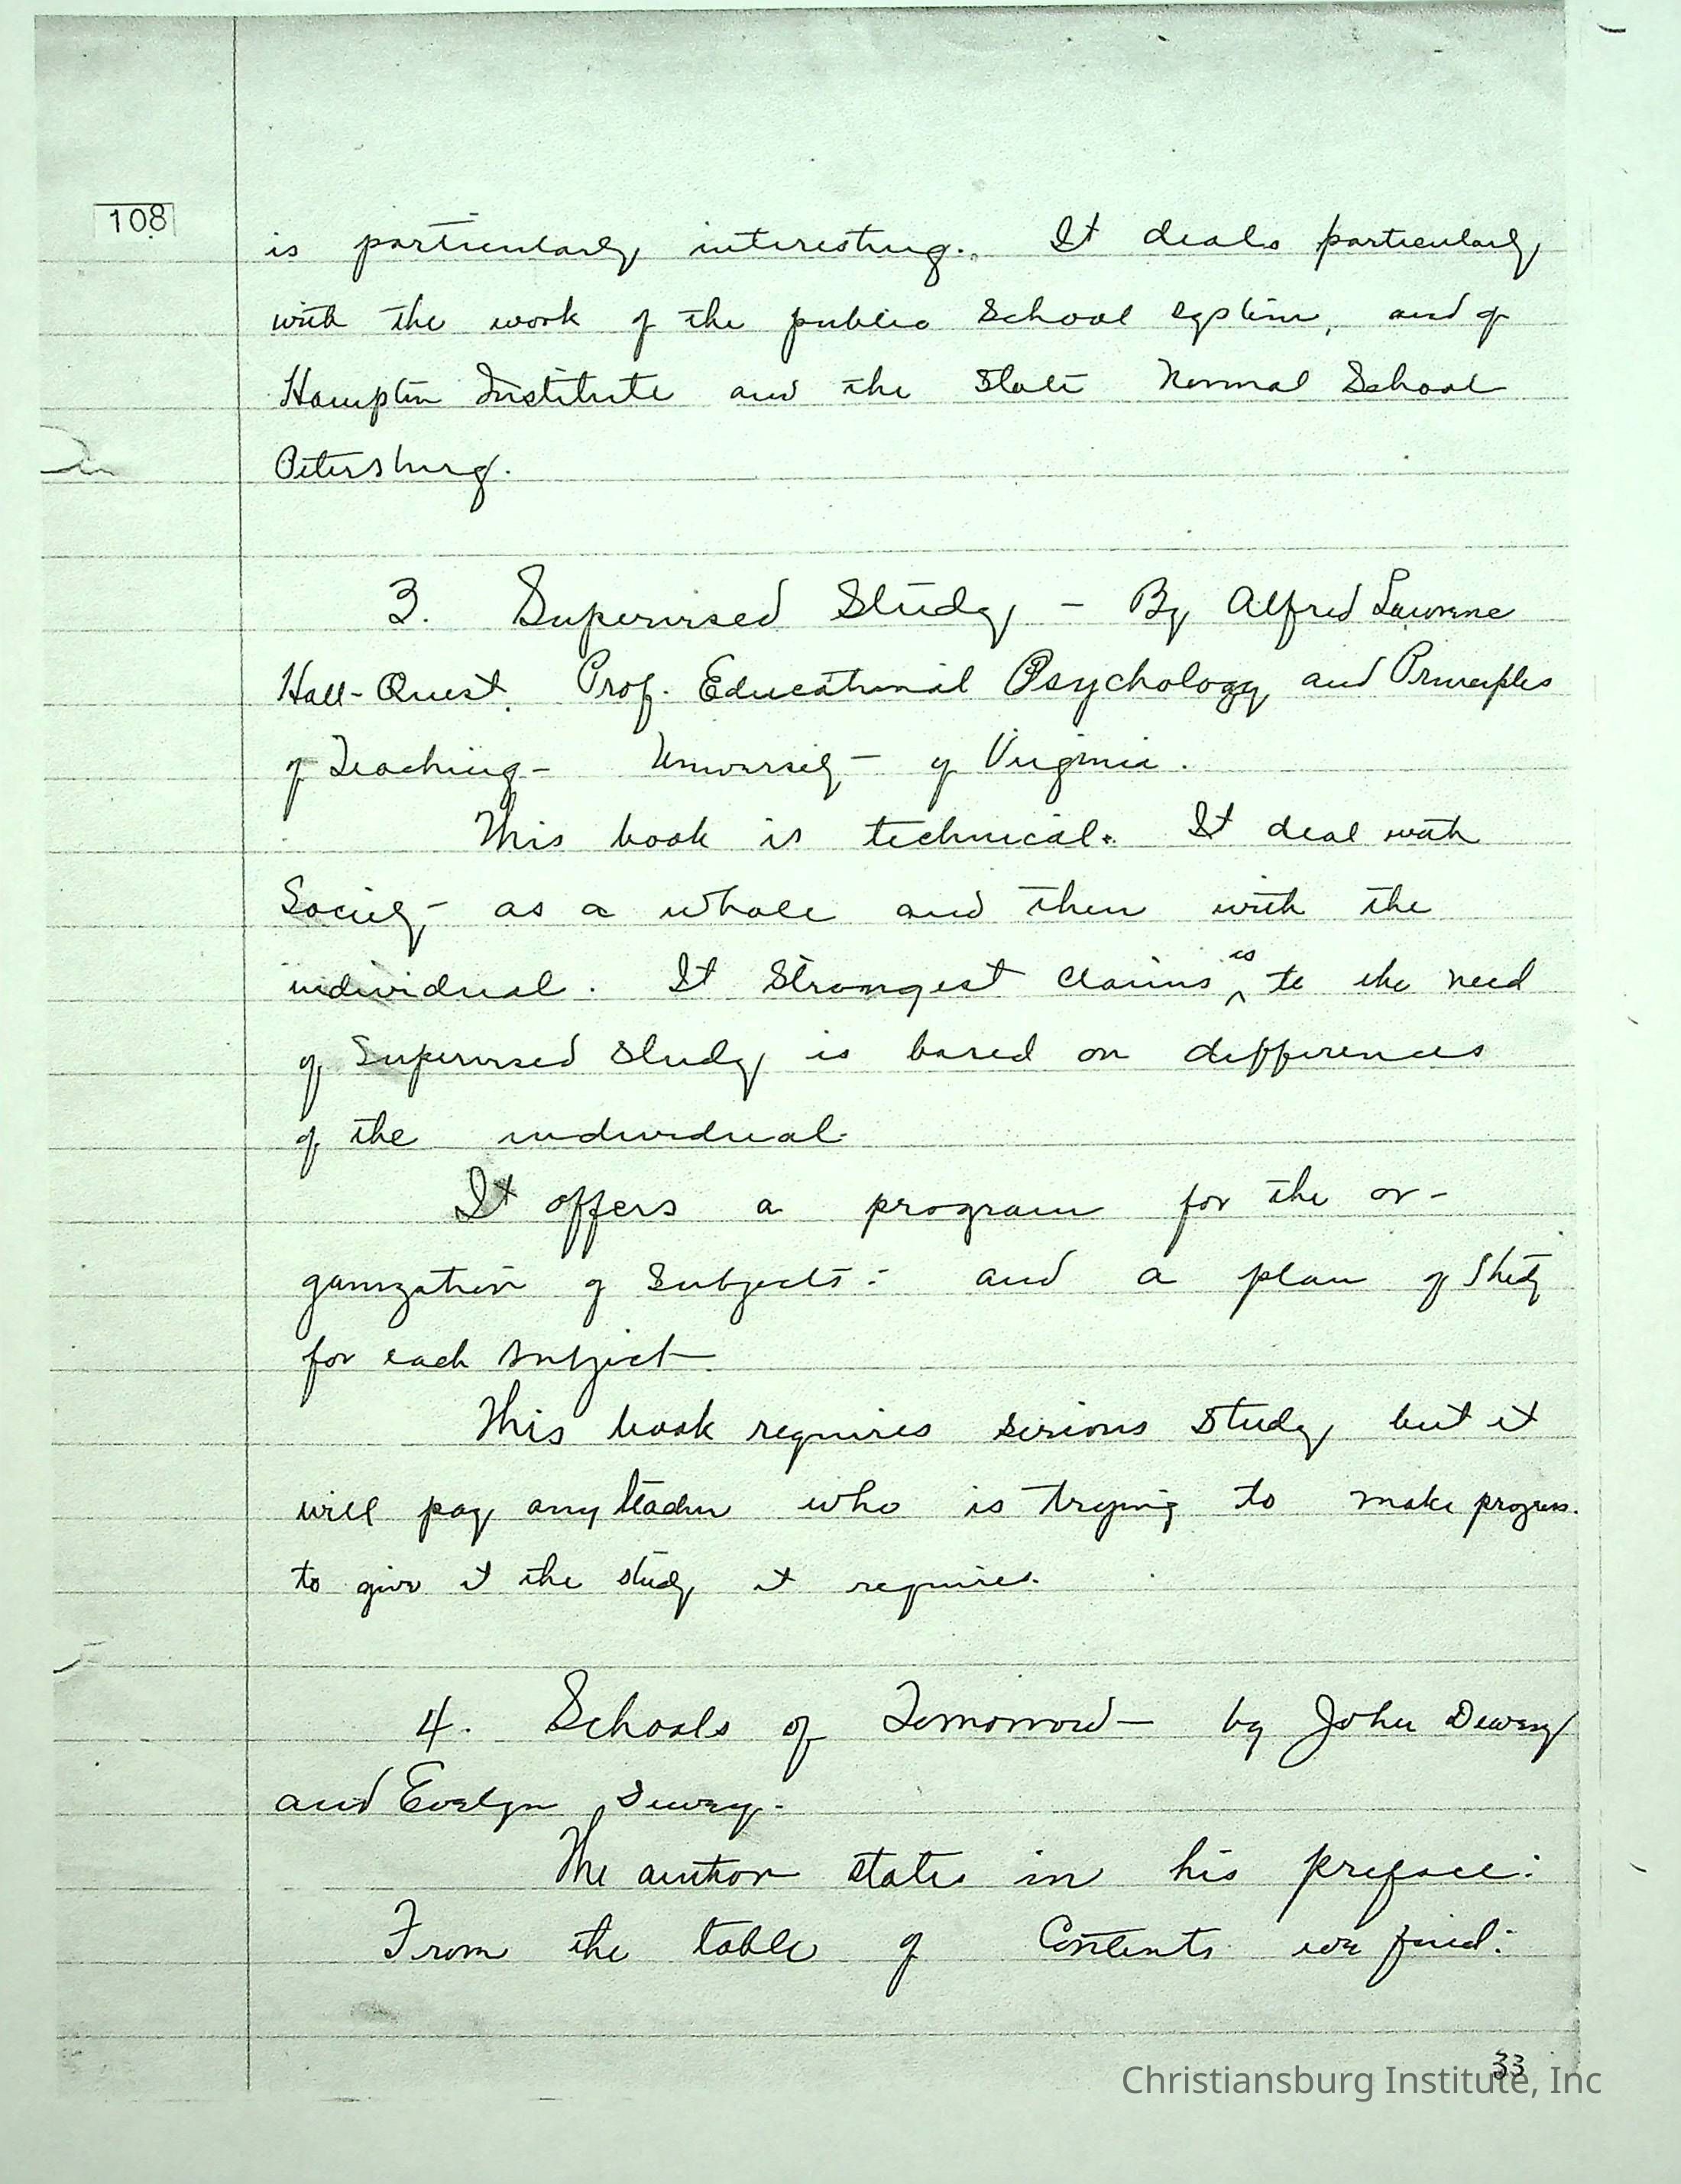 108
is particularly interesting. It deals particularly
with the work of the public School system, and of
Hampton Institute and the State Normal School
Petersburg.
3. Supervised Study - By Alfred Lawrence
Hall-Quest. Prof. Educational Psychology and Principles
of Teaching - University - of Virginia.
This book is technical. It deal with
Society - as a whole and then with the
individual. It Strongest Claims as to the need
of Supervised Study is based on differences
of the individual.
It offers a program for the or-
ganization of Subjects: and a plan of Study
for each subject.
This book requires serious Study but it
will pay any teacher who is trying to make progress.
to give it the study it requires.
4. Schools of Tomorrow - by John Dewey
and Evelyn Dewey.
The author states in his preface:
From the table of Contents we find:
33
Christiansburg Institute, Inc